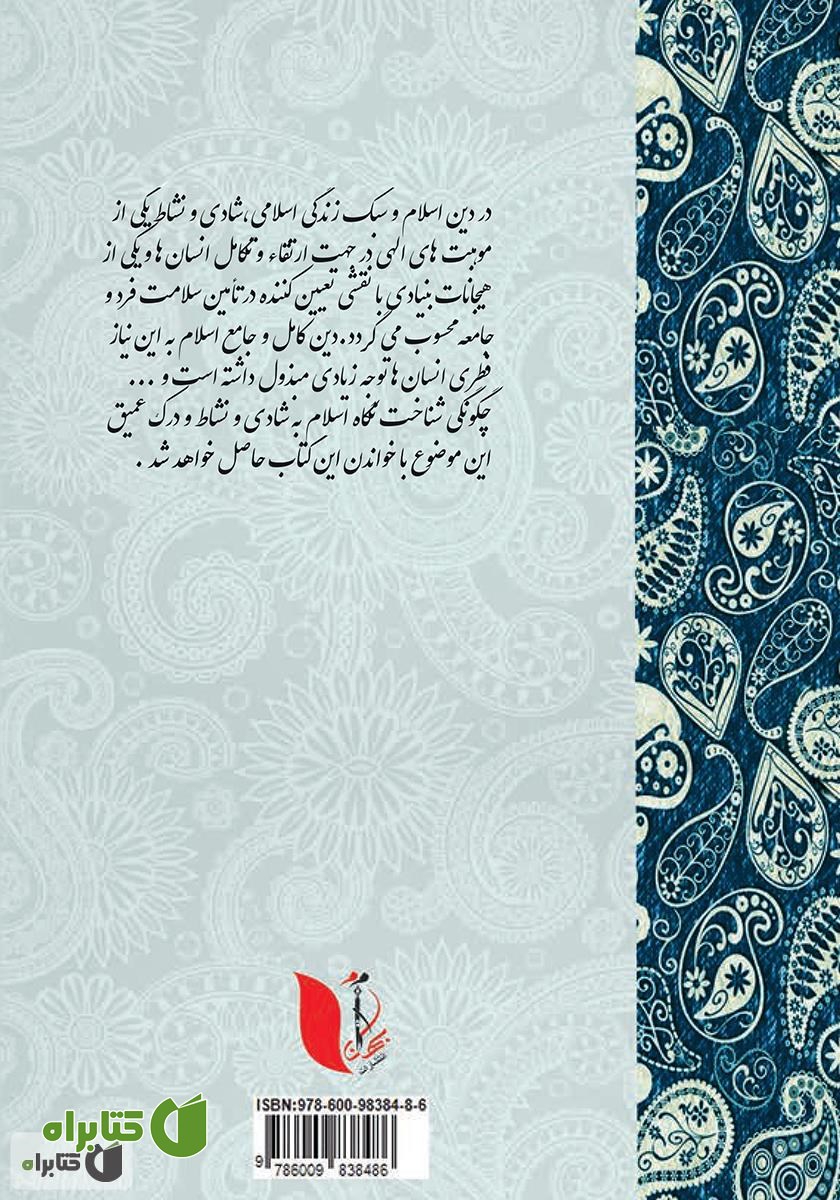 در دین اسلام و سبک زندگی اسلامی،شادی و نشاط یکی از
موهبت های الهی در جهت ارتقاء و تکامل انسان ها و یکی از
هیجانات بنیادی با نقشی تعیین کننده در تأمین سلامت فرد و
جامعه محسوب می گردد.دین کامل و جامع اسلام به این نیاز
فطری انسان ها توجه زیادی مبذول داشته است و ...
چگونگی شناخت نگاه اسلام به شادی و نشاط و درک عمیق
این موضوع با خواندن این کتاب حاصل خواهد شد .
انتشارات
ISBN:978-600-98384-8-6
9 786009 838486
کتابراه
کتابراه